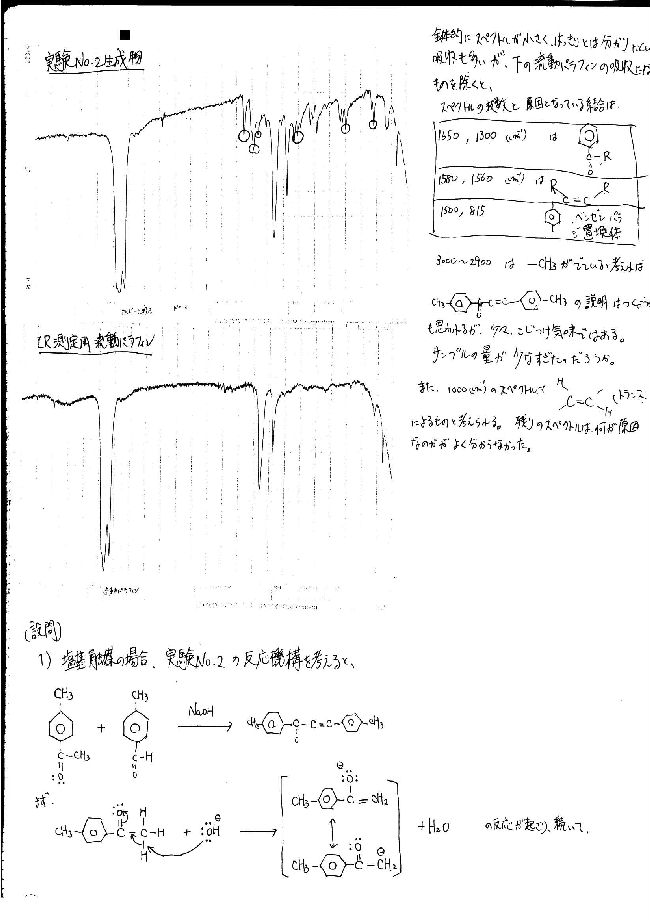 実験No.2生成物
全体的にスペクトルが小さく、はっきりとは分かりにくい
吸収も多いが、下の流動パラフィンの吸収に
ものを除くと、
スペクトルの波数と原因となっている結合は
1550, 1300 (cm⁻¹) は
C-R
O
1580, 1560 (cm⁻¹) は
R R
C=C
1500, 815
ベンゼン パラ
ジ置換体
3000~2900 は -CH3がでていると考えれば
CH3 C C=C CH3 の説明はつくと
O
も思われるが、少々、こじつけ気味ではある。
サンプルの量が少なすぎたのだろうか。
また、1000(cm⁻¹)のスペクトルで
H
C=C (トランス
H
によるものと考えられる。残りのスペクトルは、何が原因
なのかがよく分からなかった。
IR測定用 流動パラフィン
流動パラフィン
(設問)
1) 塩基触媒の場合、実験No.2の反応機構を考えると、
CH3 CH3
+ NaOH → CH3 C C=C CH3
C-CH3 C-H O
O O
まず、
CH3 C C-H + OH⊖ → CH3 C=CH2 + H2O の反応が起こり、続いて、
CH3 C-CH2